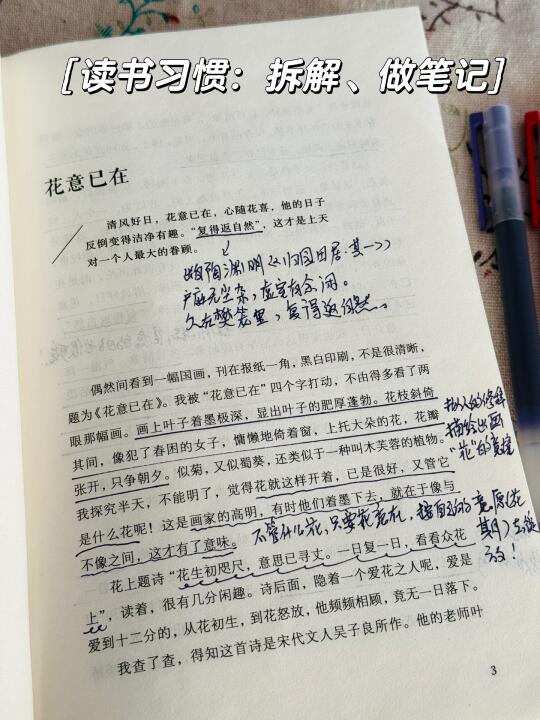 [读书习惯：拆解、做笔记]
花意已在
清风好日，花意已在，心随花喜，他的日子
反倒变得洁净有趣。“复得返自然”，这才是上天
对一个人最大的眷顾。
陶渊明《归园田居·其一》
户庭无尘杂，虚室有余闲。
久在樊笼里，复得返自然。
偶然间看到一幅国画，刊在报纸一角，黑白印刷，不是很清晰，
题为《花意已在》。我被“花意已在”四个字打动，不由得多看了两
眼那幅画。画上叶子着墨极深，显出叶子的肥厚蓬勃。花枝斜倚
其间，像犯了春困的女子，慵懒地倚着窗，上托大朵的花，花瓣
张开，只争朝夕。似菊，又似蜀葵，还类似于一种叫木芙蓉的植物。
我探究半天，不能明了，觉得花就这样开着，已是很好，又管它
是什么花呢！这是画家的高明，有时他们着墨下去，就在于像与
不像之间，这才有了意味。
拟人的修辞
描绘出画
“花”的
不管什么花，只要花意在，
花上题诗“花生初咫尺，意思已寻丈。一日复一日，看看众花
上”，读着，很有几分闲趣。诗后面，隐着一个爱花之人呢，爱是
爱到十二分的，从花初生，到花怒放，他频频相顾，竟无一日落下。
我查了查，得知这首诗是宋代文人吴子良所作。他的老师叶
3